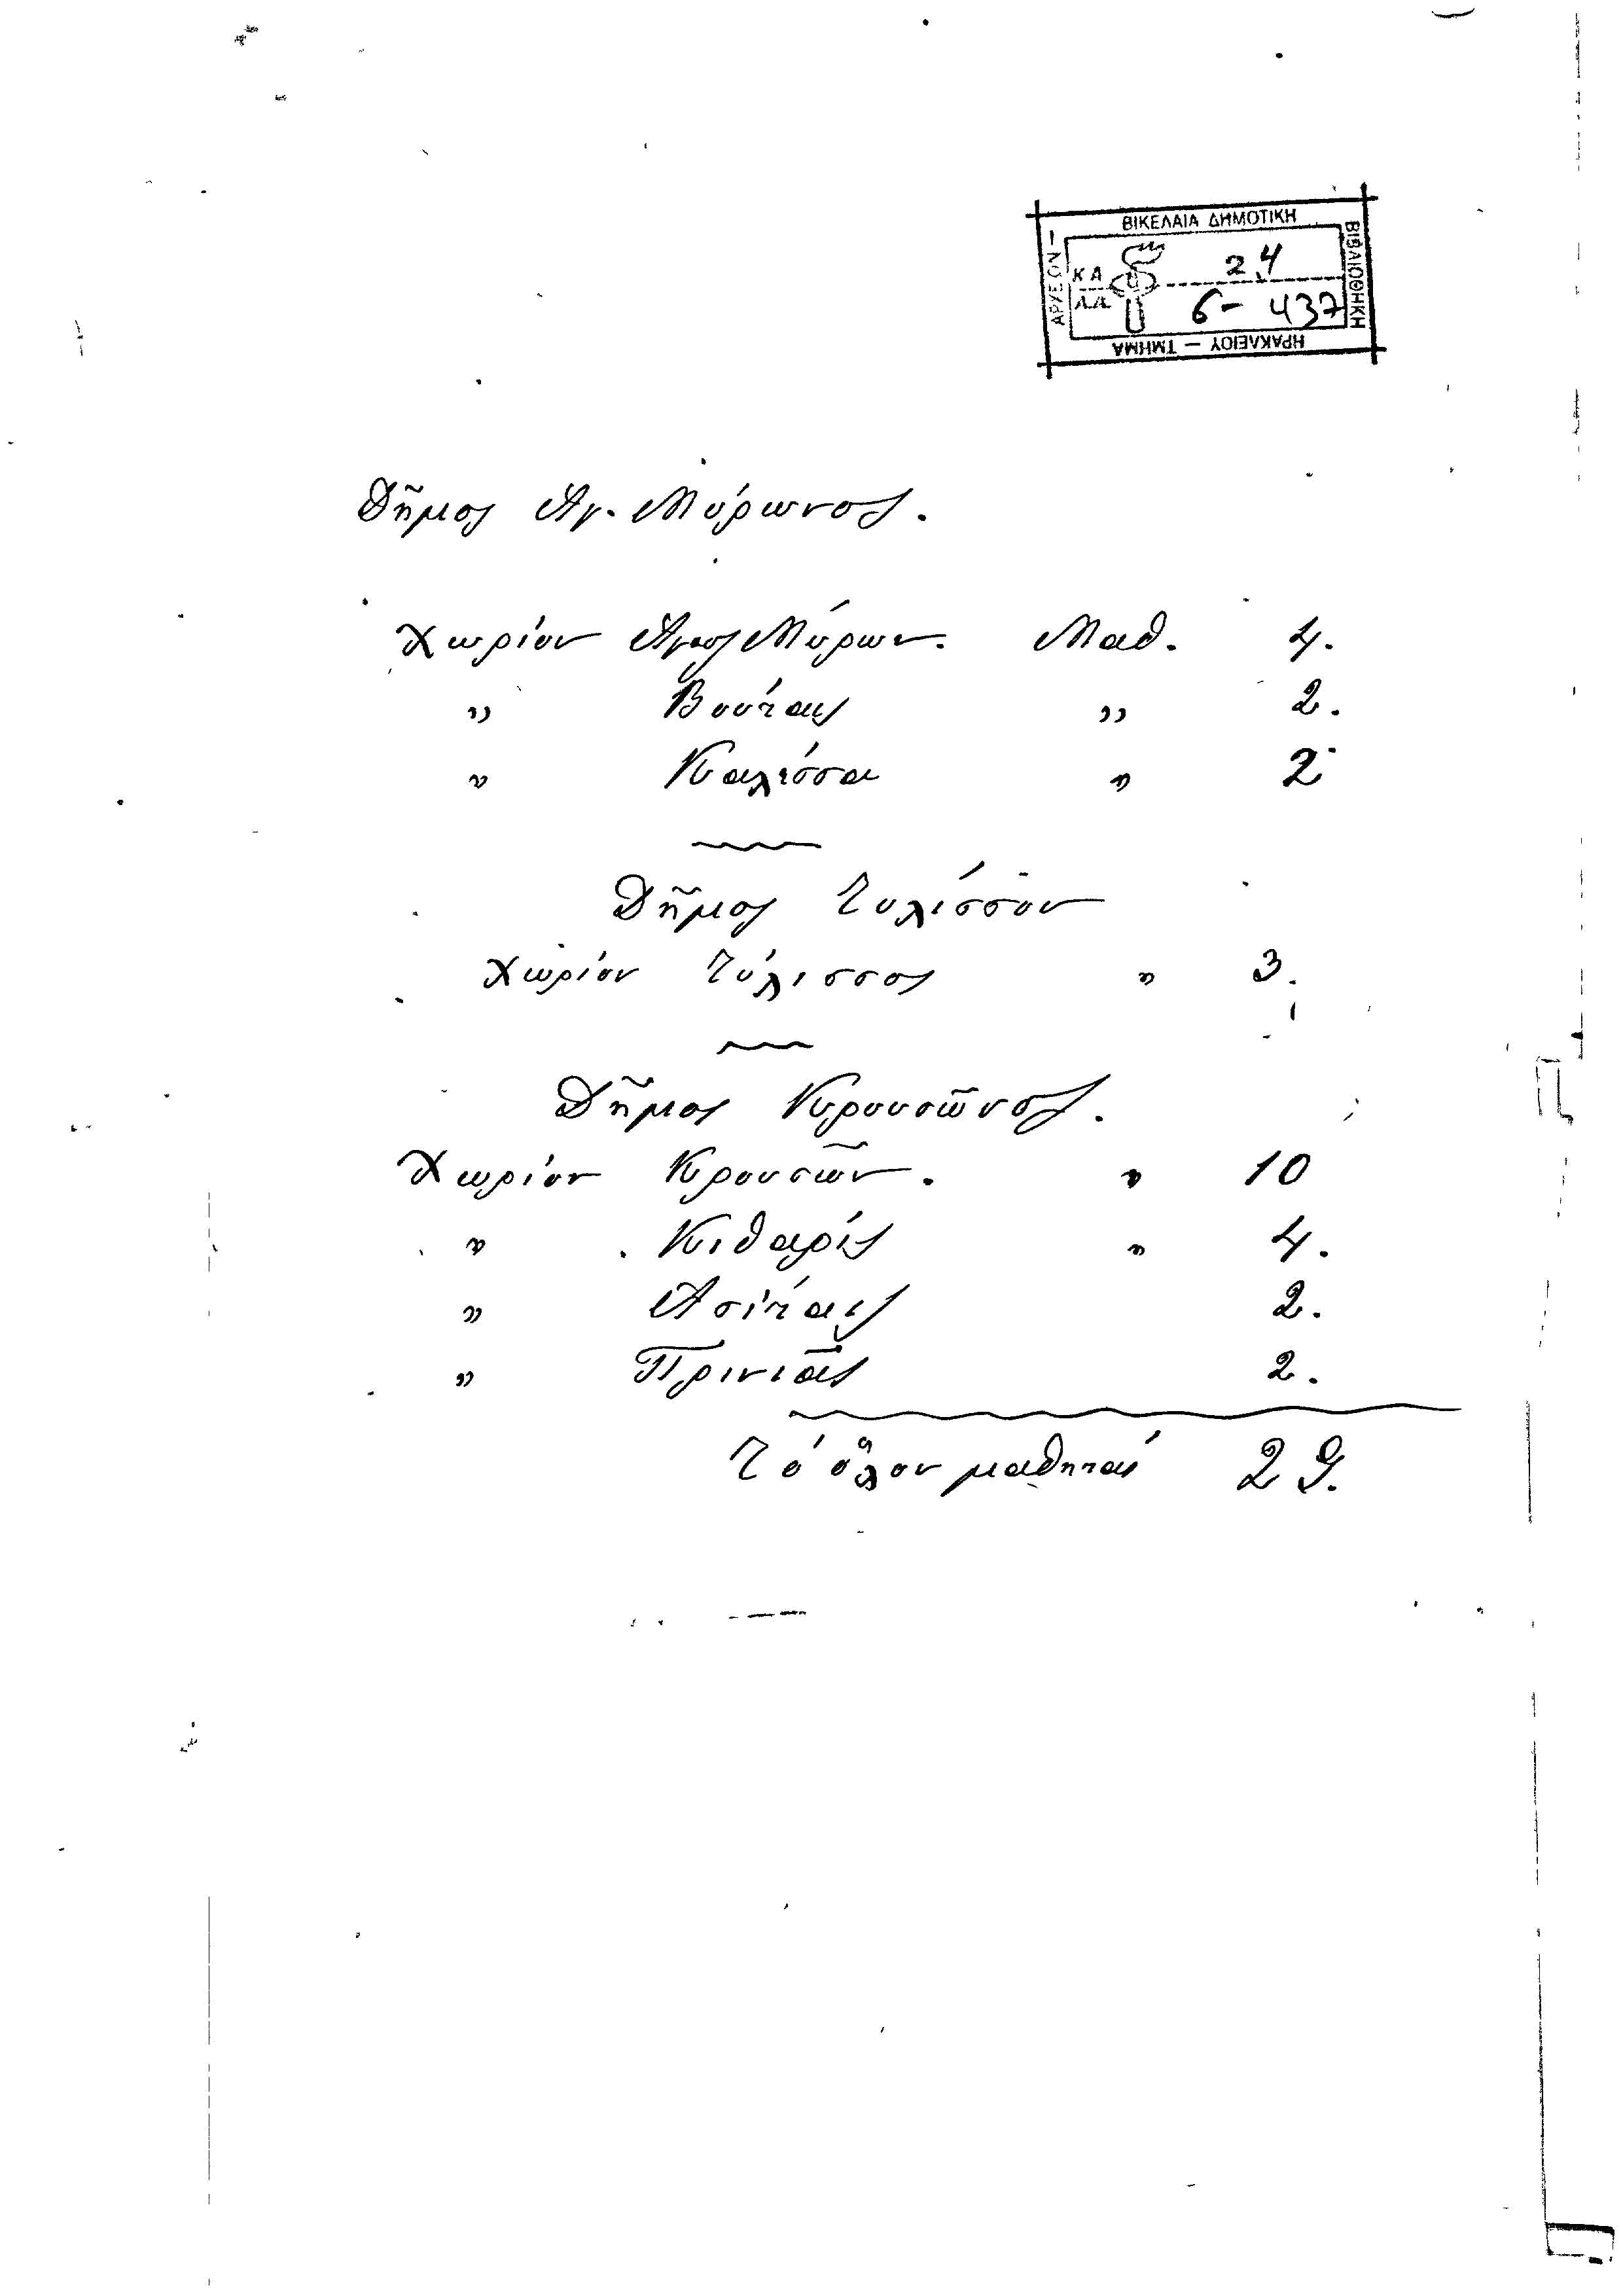 ΒΙΚΕΛΑΙΑ ΔΗΜΟΤΙΚΗ
ΒΙΒΛΙΟΘΗΚΗ
ΗΡΑΚΛΕΙΟΥ — ΤΜΗΜΑ
ΑΡΧΕΙΩΝ —
ΚΑ 24
Α.Α. 6- 437
Δῆμος Ἁγ. Μύρωνος.
Χωρίον Ἅγιος Μύρων. Μαθ. 4.
„ Βούταις „ 2.
„ Καλέσσα „ 2
Δῆμος Τυλίσσου
Χωρίον Τύλισσος „ 3.
Δῆμος Κρουσῶνος.
Χωρίον Κρουσῶν. „ 10
„ Κιθαρίς „ 4.
„ Ἀσίταις 2.
„ Πρινιᾶς 2.
Τό ὅλον μαθηταί 29.